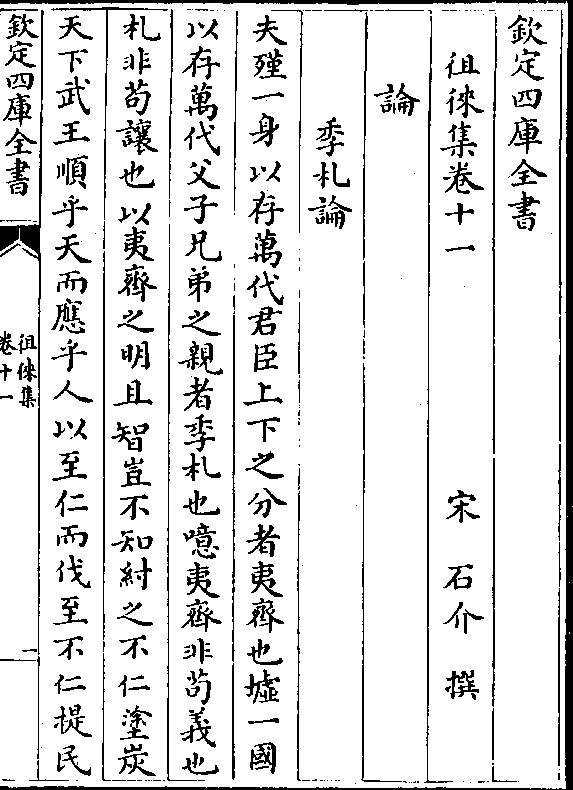 欽定四庫全書
徂徠集卷十一　宋　石介　撰
論
季札論
夫殣一身以存萬代君臣上下之分者夷齊也墟一國
以存萬代父子兄弟之親者季札也噫夷齊非苟義也
札非苟讓也以夷齊之明且智豈不知紂之不仁塗炭
天下武王順乎天而應乎人以至仁而伐至不仁提民
欽定四庫全書
徂徠集
卷十一
一